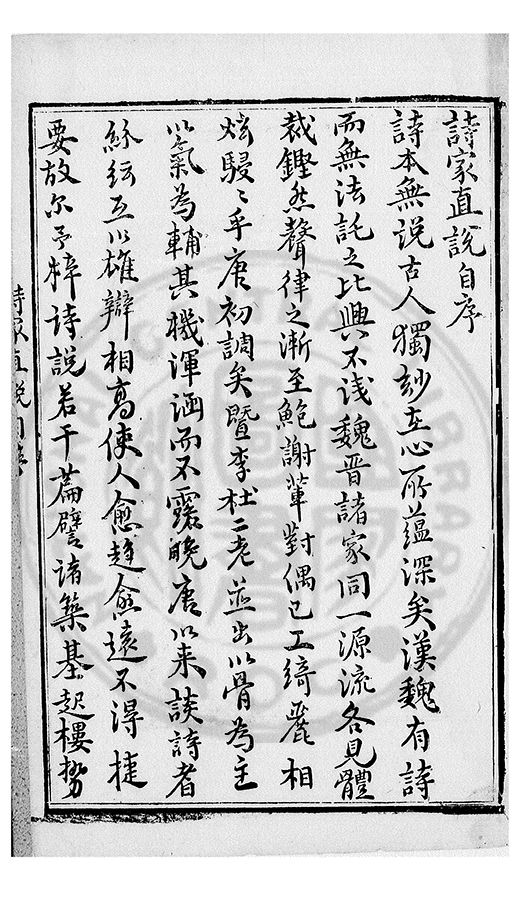 詩家直說自序
詩本無說古人獨妙在心所蘊深矣漢魏有詩
而無法託之比興不淺魏晉諸家同一源流各見體
裁鏗然聲律之漸至鮑謝輩對偶已工綺麗相
炫駸〻乎唐初調矣暨李杜二老並出以骨為主
以氣為輔其機渾涵而不露晚唐以来談詩者
紛紜互以雄辯相高使人愈趨愈遠不得捷
要故尔予梓诗説若干篇譬諸築基起樓勢
詩家直說自序